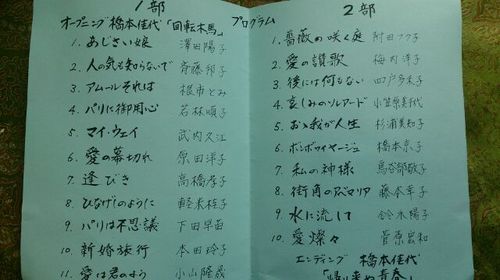 プログラム
1部
オープニング 橋本佳代「回転木馬」
1. あじさい娘 澤田陽子
2. 人の気も知らないで 斉藤邦子
3. アムールそれは 根市とみ
4. パリに御用心 若林順子
5. マイ・ウェイ 武内久江
6. 愛の幕切れ 原田洋子
7. 逢びき 高橋孝子
8. ひなげしのように 軽米枝子
9. パリは不思議 下田早苗
10. 新婚旅行 本田玲子
11. 愛は君のよう 小山隆哉
2部
1. 薔薇の咲く庭 附田フク子
2. 愛の讃歌 梅内洋子
3. 後には何もない
4. 哀しみのソレアード 小笠原美代
5. おゝ我が人生 杉浦美和子
6. ボンボワイヤージュ 橋本京子
7. 私の神様 鳥谷部敬子
8. 街角のアベマリア 藤本幸子
9. 水に流して 鈴木陽子
10. 愛燦々 菅原宏和
エンディング 橋本佳代